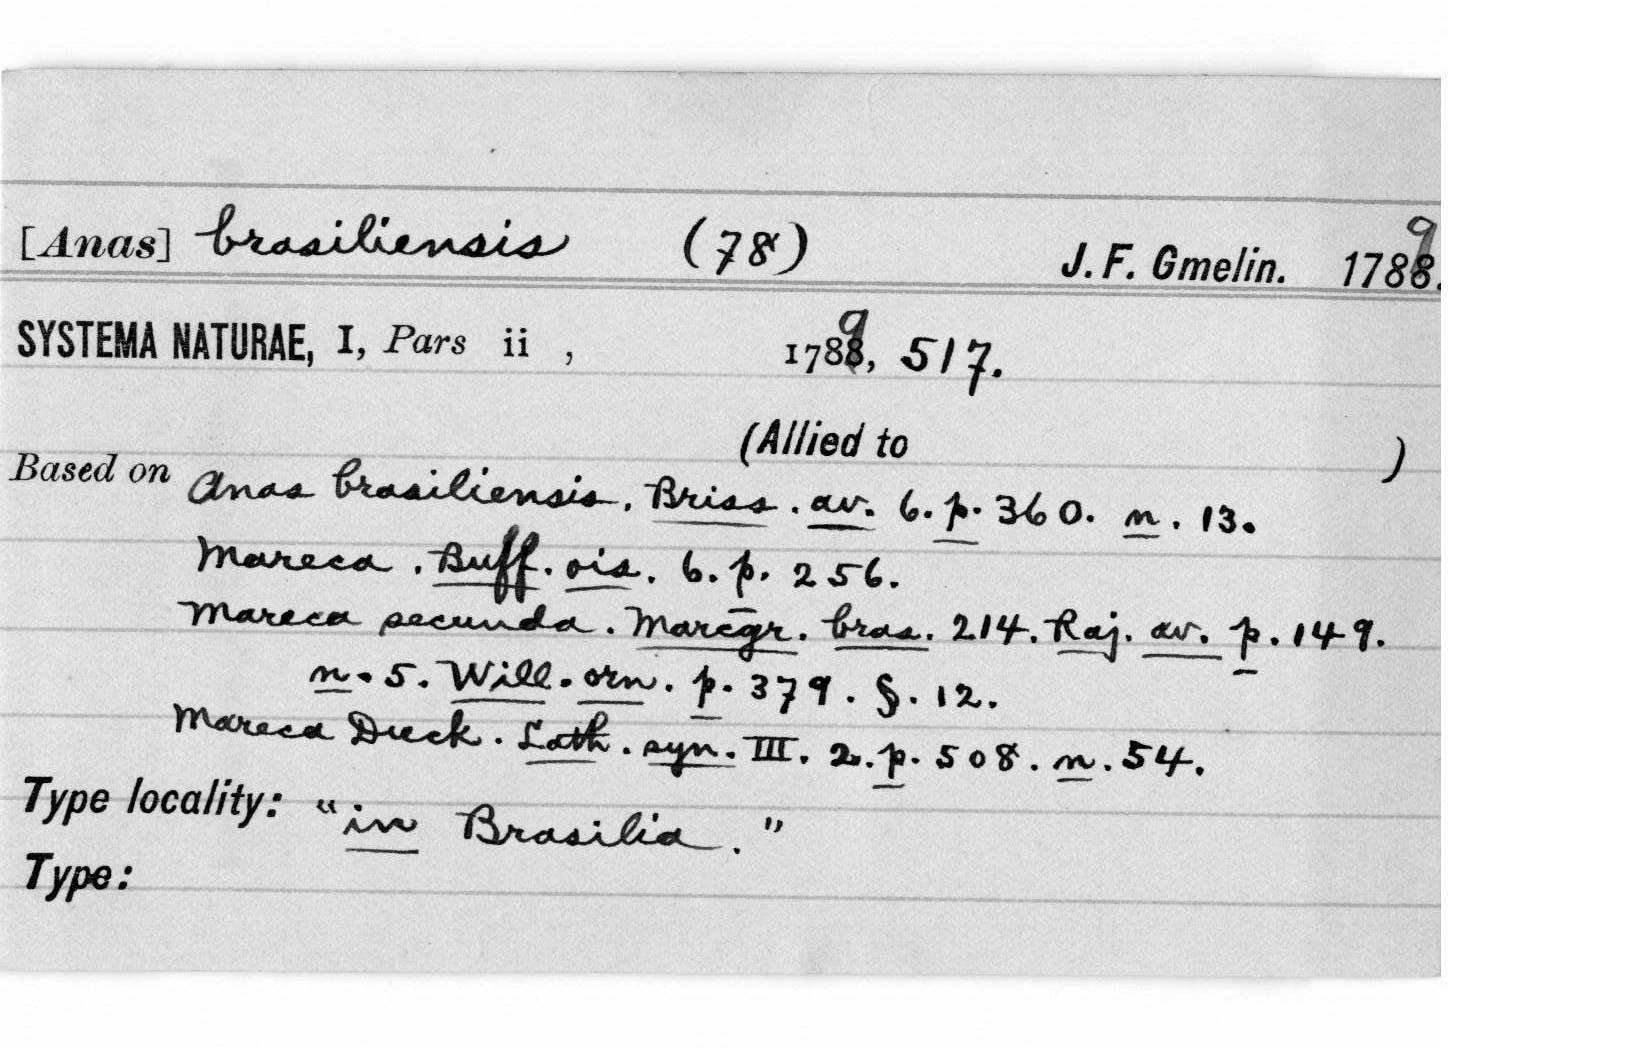 [Anas] brasiliensis (78) J. F. Gmelin. 1789.
SYSTEMA NATURAE, I, Pars ii , 1789, 517.
(Allied to )
Based on Anas brasiliensis. Briss. av. 6. p. 360. n. 13.
Mareca. Buff. ois. 6. p. 256.
Mareca secunda. Marcgr. bras. 214. Raj. av. p. 149.
n. 5. Will. orn. p. 379. §. 12.
Mareca Duck. Lath. syn. III. 2. p. 508. n. 54.
Type locality: "in Brasilia."
Type: